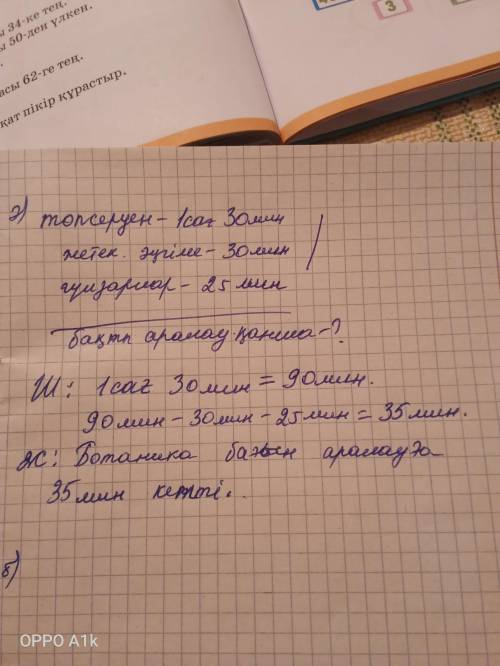 ы 34-ке тең.
ы 50-ден үлкен.
асы 62-ге тең.
қат пікір құрастыр.
3
ә) топсеруен - 1саг 30мин
жетек. әңгіме - 30мин
гүлзарлар - 25 мин
бақты аралау қанша - ?
Ш: 1саг 30мин = 90мин.
90мин - 30мин - 25мин = 35мин.
Ж: Ботаника бағын аралауға
35мин кетті.
б)
OPPO A1k